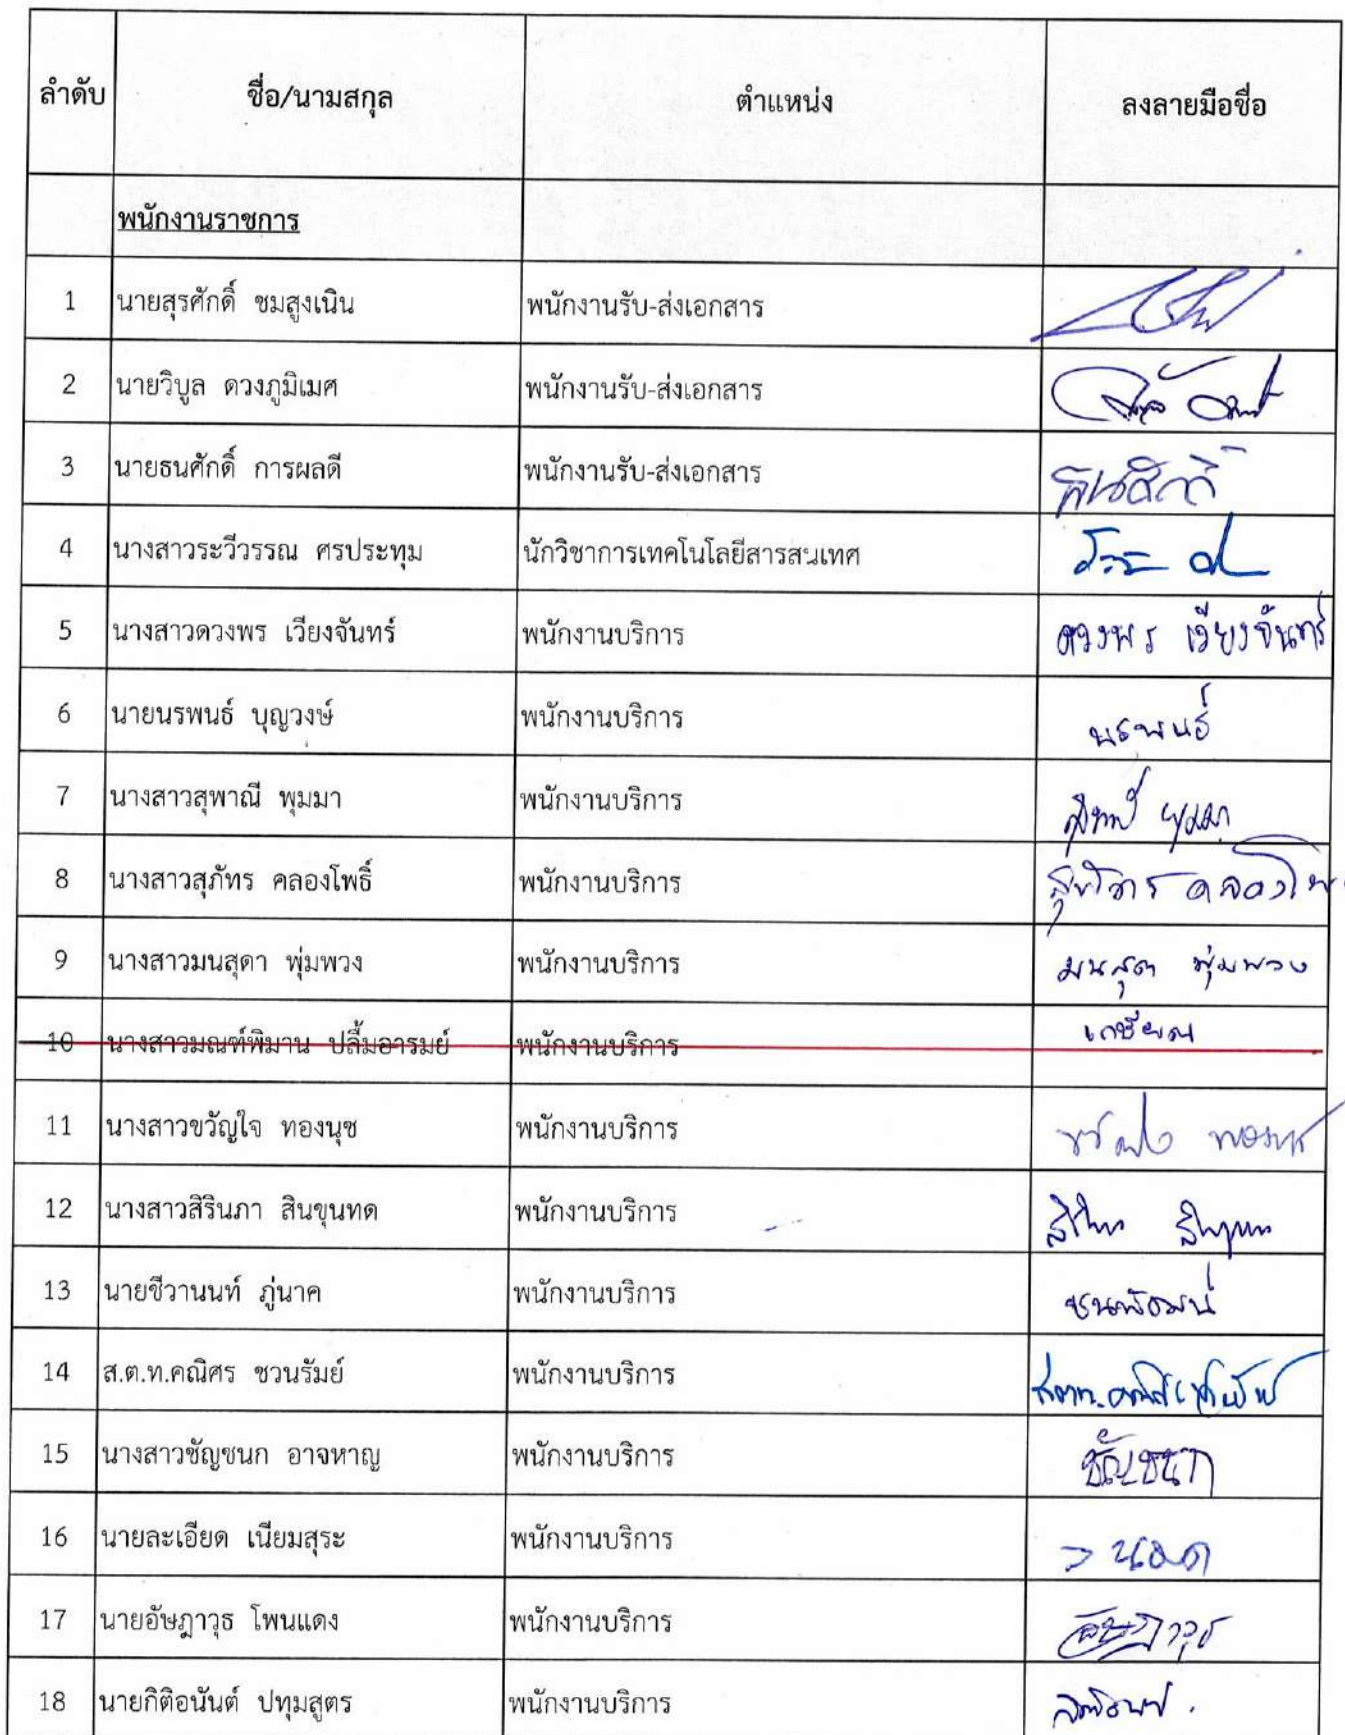 ลำดับ ชื่อ/นามสกุล ตำแหน่ง ลงลายมือชื่อ
พนักงานราชการ
1 นายสุรศักดิ์ ชมสูงเนิน พนักงานรับ-ส่งเอกสาร
2 นายวิบูล ดวงภูมิเมศ พนักงานรับ-ส่งเอกสาร
3 นายธนศักดิ์ การผลดี พนักงานรับ-ส่งเอกสาร ธนศักดิ์
4 นางสาวระวีวรรณ ศรประทุม นักวิชาการเทคโนโลยีสารสนเทศ
5 นางสาวดวงพร เวียงจันทร์ พนักงานบริการ ดวงพร เวียงจันทร์
6 นายนรพนธ์ บุญวงษ์ พนักงานบริการ นรพนธ์
7 นางสาวสุพาณี พุมมา พนักงานบริการ สุพาณี พุมมา
8 นางสาวสุภัทร คลองโพธิ์ พนักงานบริการ
9 นางสาวมนสุดา พุ่มพวง พนักงานบริการ มนสุดา พุ่มพวง
10 นางสาวมณฑ์พิมาน ปลื้มอารมย์ พนักงานบริการ เกษียณ
11 นางสาวขวัญใจ ทองนุช พนักงานบริการ ขวัญใจ ทองนุช
12 นางสาวสิรินภา สินขุนทด พนักงานบริการ
13 นายชีวานนท์ ภู่นาค พนักงานบริการ
14 ส.ต.ท.คณิศร ชวนรัมย์ พนักงานบริการ
15 นางสาวชัญชนก อาจหาญ พนักงานบริการ ชัญชนก
16 นายละเอียด เนียมสุระ พนักงานบริการ
17 นายอัษฎาวุธ โพนแดง พนักงานบริการ อัษฎาวุธ
18 นายกิติอนันต์ ปทุมสูตร พนักงานบริการ